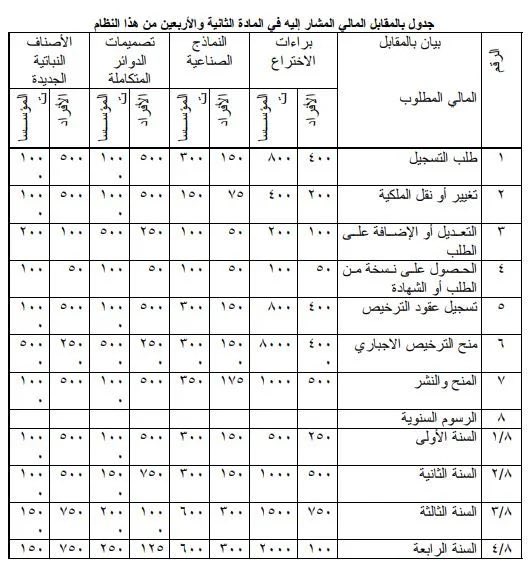 جدول بالمقابل المالي المشار إليه في المادة الثانية والأربعين من هذا النظام
الرقم
بيان بالمقابل
المالي المطلوب
براءات
الاختراع
النماذج
الصناعية
تصميمات
الدوائر
المتكاملة
الأصناف
النباتية
الجديدة
الأفراد المؤسسا الأفراد المؤسسا الأفراد المؤسسا الأفراد المؤسسا
ت ت ت ت
١ طلب التسجيل ٤٠٠ ٨٠٠ ١٥٠ ٣٠٠ ٥٠٠ ١٠٠ ٥٠٠ ١٠٠
٠ ٠
٢ تغيير أو نقل الملكية ٢٠٠ ٤٠٠ ٧٥ ١٥٠ ٥٠٠ ١٠٠ ٥٠٠ ١٠٠
٠ ٠
٣ التعديل أو الإضافة على ١٠٠ ٢٠٠ ٥٠ ١٠٠ ٢٥٠ ٥٠٠ ١٠٠ ٢٠٠
الطلب
٤ الحصول على نسخة من ٥٠ ١٠٠ ٥٠ ١٠٠ ٥٠ ١٠٠ ٥٠ ١٠٠
الطلب أو الشهادة
٥ تسجيل عقود الترخيص ٤٠٠ ٨٠٠ ١٥٠ ٣٠٠ ٥٠٠ ١٠٠ ٥٠٠ ١٠٠
٠ ٠
٦ منح الترخيص الاجباري ٤٠٠ ٨٠٠٠ ١٥٠ ٣٠٠ ٢٥٠ ٥٠٠ ٢٥٠ ٥٠٠
٠ ٠ ٠ ٠ ٠ ٠ ٠
٧ المنح والنشر ٥٠٠ ١٠٠٠ ١٧٥ ٣٥٠ ٥٠٠ ١٠٠ ٥٠٠ ١٠٠
٠ ٠
٨ الرسوم السنوية
١/٨ السنة الأولى ٢٥٠ ٥٠٠ ١٥٠ ٣٠٠ ٥٠٠ ١٠٠ ٥٠٠ ١٠٠
٠ ٠
٢/٨ السنة الثانية ٥٠٠ ١٠٠٠ ١٥٠ ٣٠٠ ٧٥٠ ١٥٠ ٥٠٠ ١٠٠
٠ ٠
٣/٨ السنة الثالثة ٧٥٠ ١٥٠٠ ٣٠٠ ٦٠٠ ١٠٠ ٢٠٠ ٧٥٠ ١٥٠
٠ ٠ ٠
٤/٨ السنة الرابعة ١٠٠ ٢٠٠٠ ٣٠٠ ٦٠٠ ١٢٥ ٢٥٠ ٧٥٠ ١٥٠